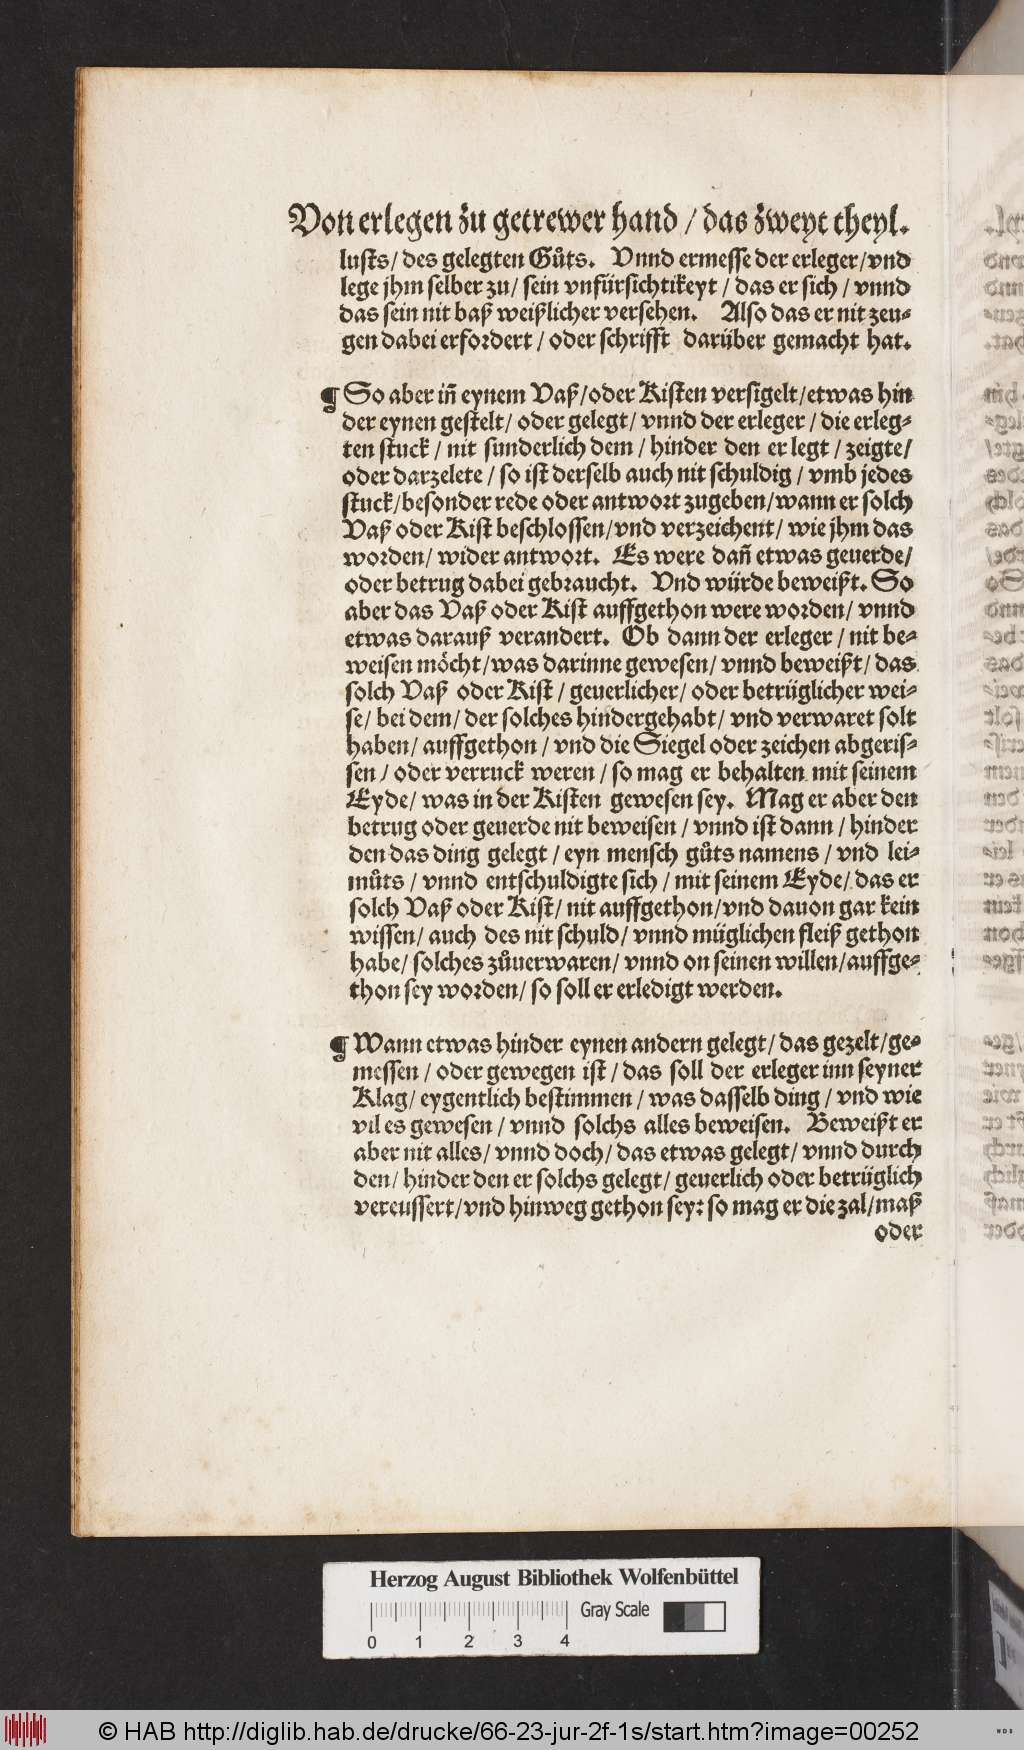 Von erlegen zu getrewer hand / das zweyt theyl.
lusts / des gelegten Gůts. Vnnd ermesse der erleger / vnd
lege jhm selber zu / sein vnfürsichtikeyt / das er sich / vnnd
das sein nit baß weißlicher versehen. Also das er nit zeu-
gen dabei erfordert / oder schrifft darüber gemacht hat.
¶ So aber iñ eynem Vaß / oder Kisten versigelt / etwas hin
der eynen gestelt / oder gelegt / vnnd der erleger / die erleg-
ten stuck / nit sunderlich dem / hinder den er legt / zeigte /
oder darzelete / so ist derselb auch nit schuldig / vmb jedes
stuck / besonder rede oder antwort zugeben / wann er solch
Vaß oder Kist beschlossen / vnd verzeichent / wie jhm das
worden / wider antwort. Es were dañ etwas geuerde /
oder betrug dabei gebraucht. Vnd würde beweißt. So
aber das Vaß oder Kist auffgethon were worden / vnnd
etwas darauß verandert. Ob dann der erleger / nit be-
weisen möcht / was darinne gewesen / vnnd beweißt / das
solch Vaß oder Kist / geuerlicher / oder betrüglicher wei-
se / bei dem / der solches hindergehabt / vnd verwaret solt
haben / auffgethon / vnd die Siegel oder zeichen abgeris-
sen / oder verruck weren / so mag er behalten mit seinem
Eyde / was in der Kisten gewesen sey. Mag er aber den
betrug oder geuerde nit beweisen / vnnd ist dann / hinder
den das ding gelegt / eyn mensch gůts namens / vnd lei-
můts / vnnd entschuldigte sich / mit seinem Eyde / das er
solch Vaß oder Kist / nit auffgethon / vnd dauon gar kein
wissen / auch des nit schuld / vnnd müglichen fleiß gethon
habe / solches zůuerwaren / vnnd on seinen willen / auffge-
thon sey worden / so soll er erledigt werden.
¶ Wann etwas hinder eynen andern gelegt / das gezelt / ge-
messen / oder gewegen ist / das soll der erleger inn seyner
Klag / eygentlich bestimmen / was dasselb ding / vnd wie
vil es gewesen / vnnd solchs alles beweisen. Beweißt er
aber nit alles / vnnd doch / das etwas gelegt / vnnd durch
den / hinder den er solchs gelegt / geuerlich oder betrüglich
vereussert / vnd hinweg gethon sey: so mag er die zal / maß
oder
Herzog August Bibliothek Wolfenbüttel
Gray Scale
0 1 2 3 4
© HAB http://diglib.hab.de/drucke/66-23-jur-2f-1s/start.htm?image=00252